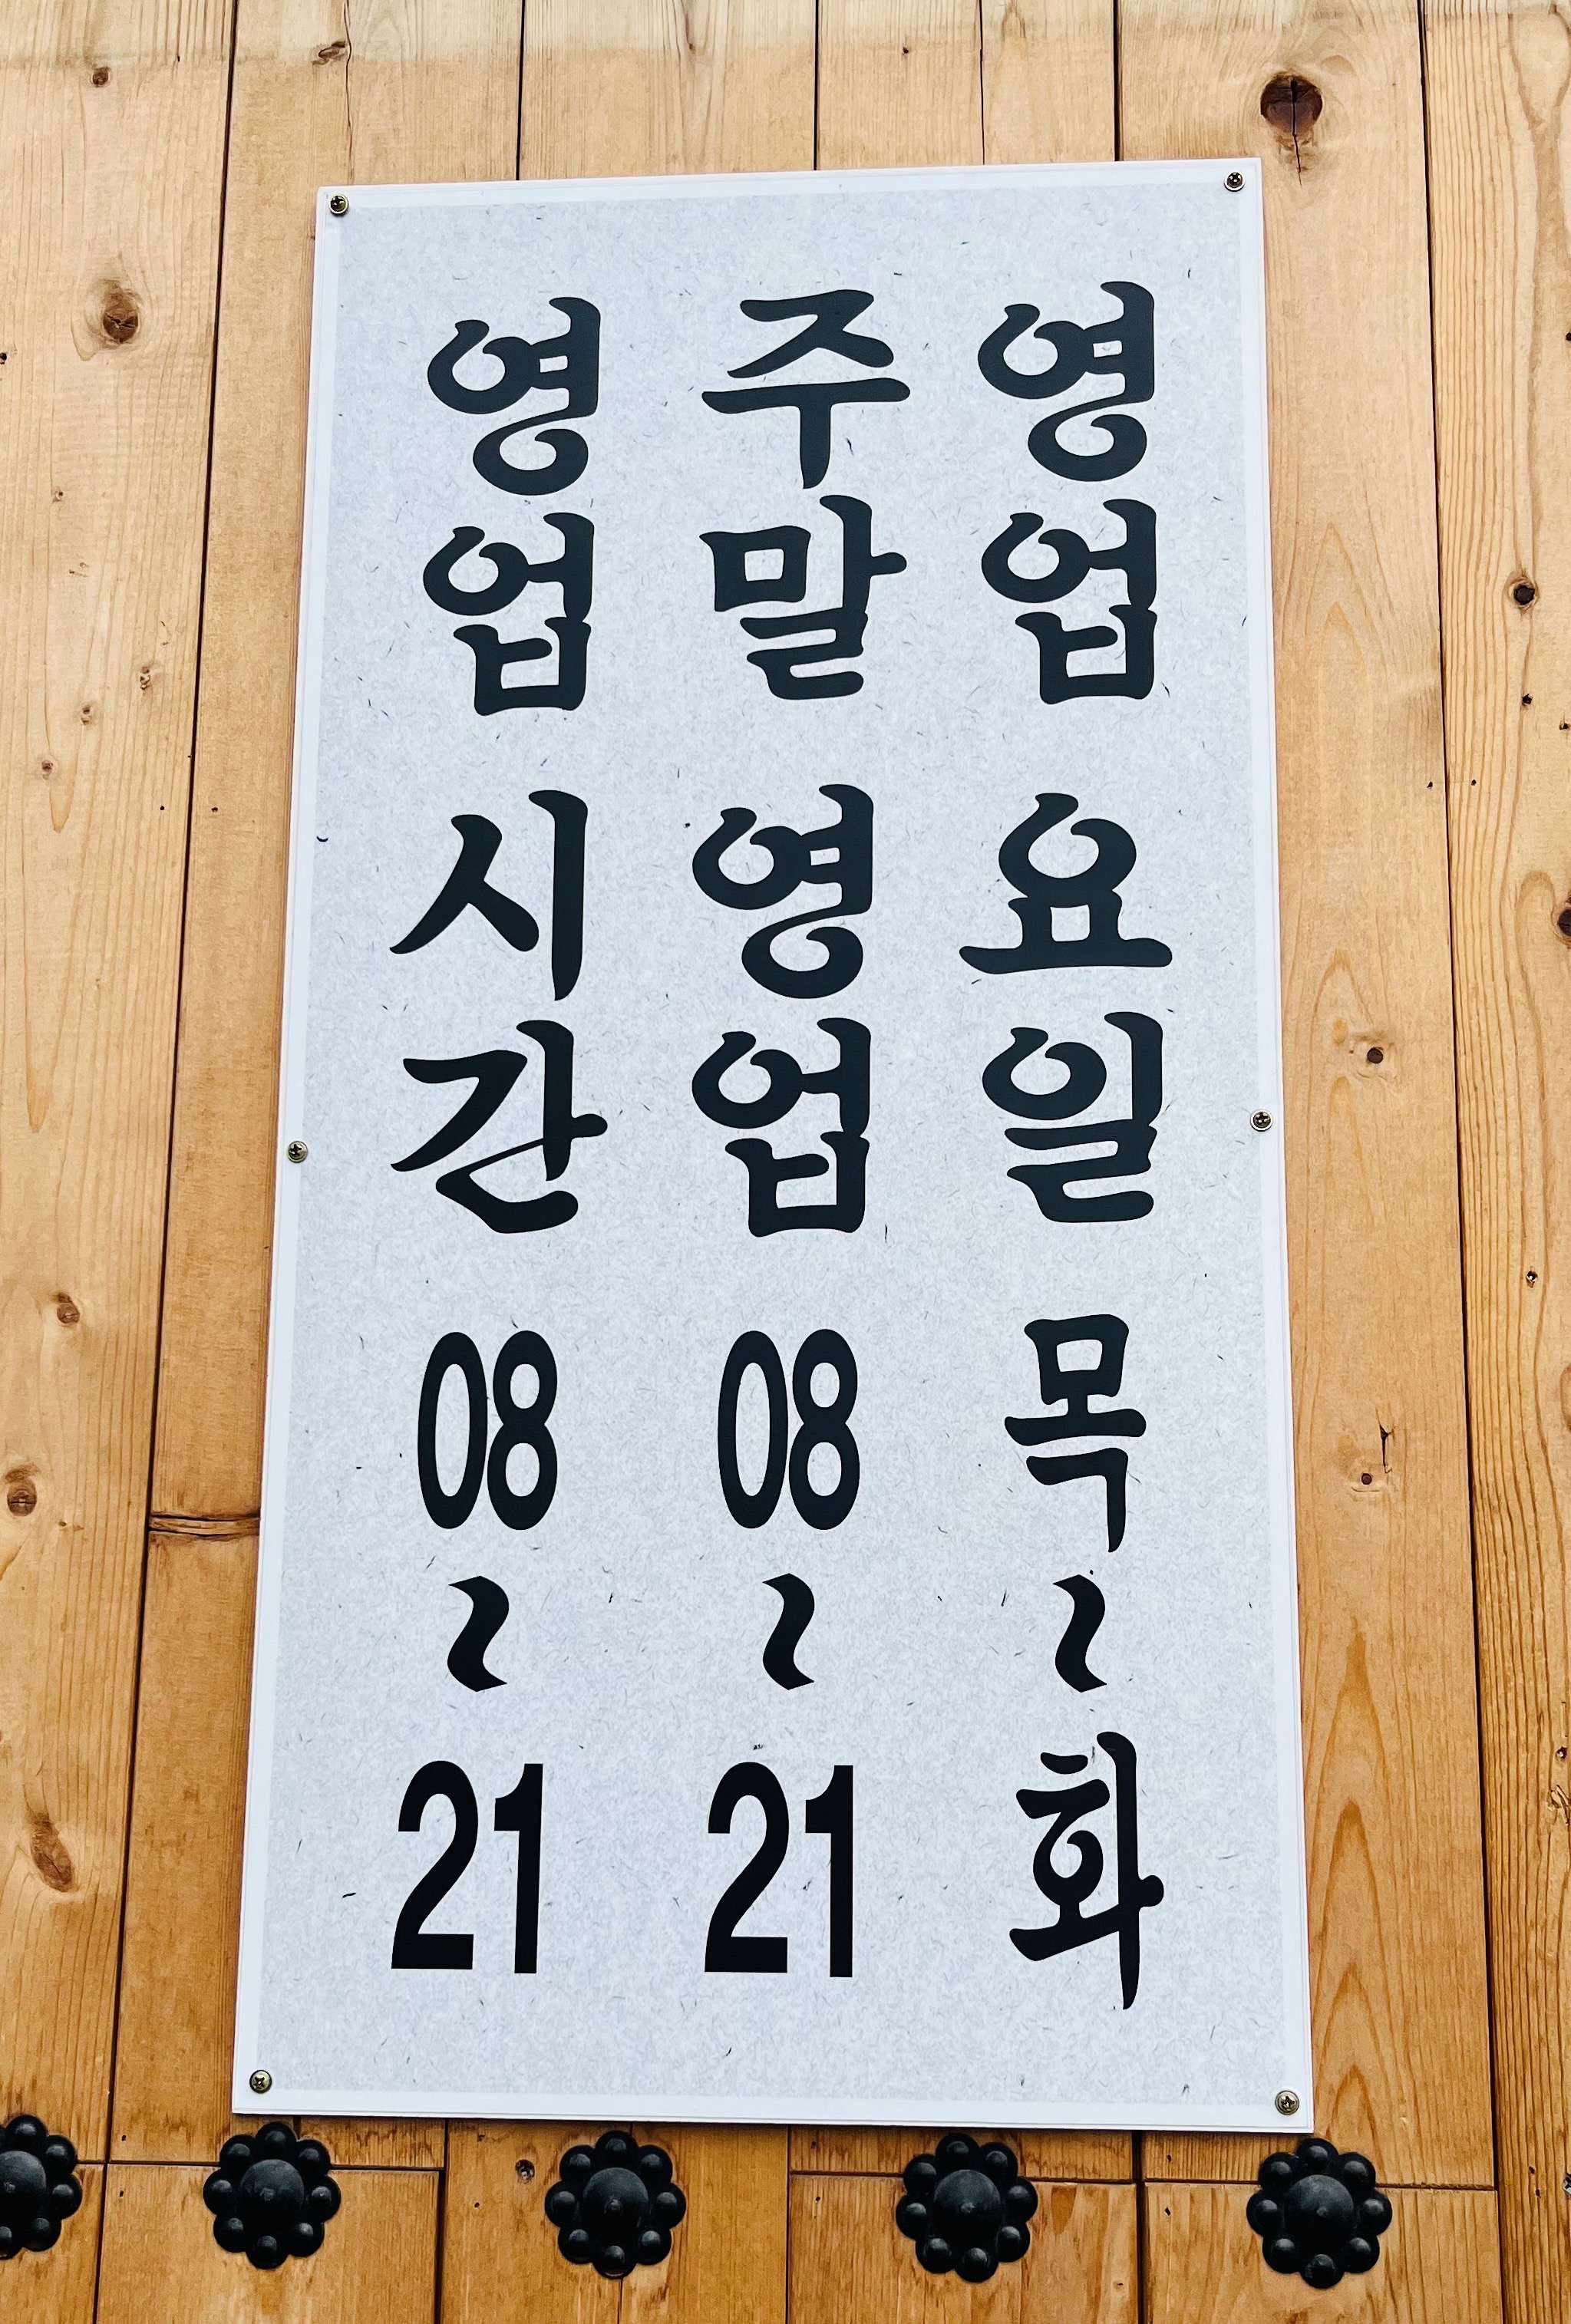 영업 요일 목~화
주말 영업 08~21
영업 시간 08~21